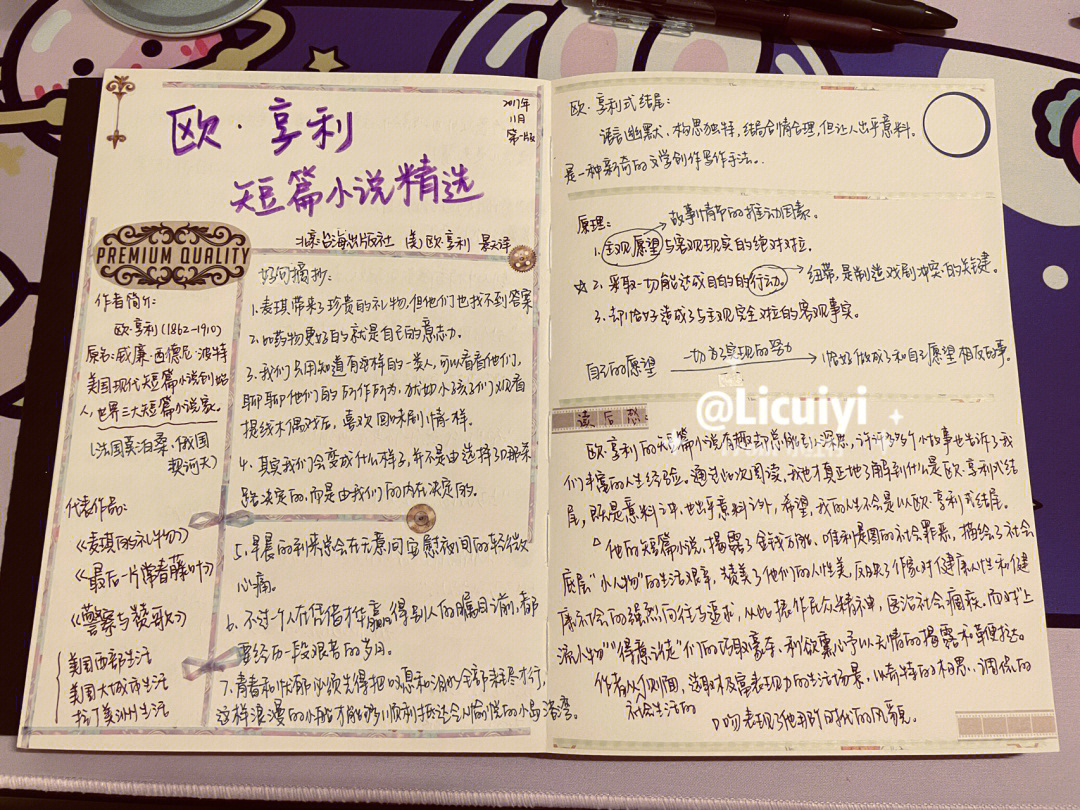 欧·亨利
短篇小说精选
2017年
11月
第一版
北京台海出版社 (美)欧·亨利 译
PREMIUM QUALITY
作者简介:
欧·亨利(1862-1910)
原名:威廉·西德尼·波特
美国现代短篇小说创始
人,世界三大短篇小说家。
(法国莫泊桑、俄国
契诃夫)
代表作品:
《麦琪的礼物》
《最后一片常青藤叶》
《警察与赞歌》
美国西部生活
美国大城市生活
拉丁美洲生活
好句摘抄:
1.麦琪带来了珍贵的礼物,但他们也找不到答案
2.比药物更好的就是自己的意志力。
3.我们只用知道有那样的一类人,可以看看他们,
聊聊他们的所作所为,就如小孩子们观看
提线木偶戏后,喜欢回味剧情一样。
4.其实我们会变成什么样子,并不是由选择了哪条
路决定的,而是由我们的内在决定的。
5.早晨的到来总会在无意间安慰夜间的轻微
心痛。
6.不过一个人在凭借才华赢得别人的瞩目前,都
要经历一段艰苦的岁月。
7.青春和快乐必须先得把叹息和泪水全部耗尽才行,
这样浪漫的小船才能够顺利抵达令人愉悦的小岛港湾。
欧·亨利式结尾:
语言幽默、构思独特,结局合情合理,但让人出乎意料。
是一种新奇的文学创作写作手法。
原理: 故事情节的推动因素。
1.主观愿望与客观现实的绝对对立。
☆2.采取一切能达成目的的行动。 纽带,是制造戏剧冲突的关键。
3.却恰好造成了与主观完全对立的客观事实。
自己的愿望 一切为了实现的努力 恰好做成了和自己愿望相反的事。
@Licuiyi
读后感:
欧·亨利的短篇小说有趣却总能引人深思,许许多多个小故事也告诉了我
们丰富的人生经验。通过此次阅读,我也才真正地了解到什么是欧·亨利式结
尾,既是意料之中,也出乎意料之外,希望,我的人生不会是以欧·亨利式结尾。
他的短篇小说,揭露了金钱万能、唯利是图的社会罪恶,描绘了社会
底层“小人物”的生活艰辛,赞美了他们的人性美,反映了作家对健康人性和健
康社会的强烈向往与追求,从此振作民众精神,医治社会痼疾。而对“上
流人物”“得意认是”们的巧取豪夺、利欲熏心予以无情的揭露和鞭挞。
作者从侧面,选取极富表现力的生活场景,以奇特的构思、诙谐的
社会生活的 口吻表现了他那个时代的风貌。